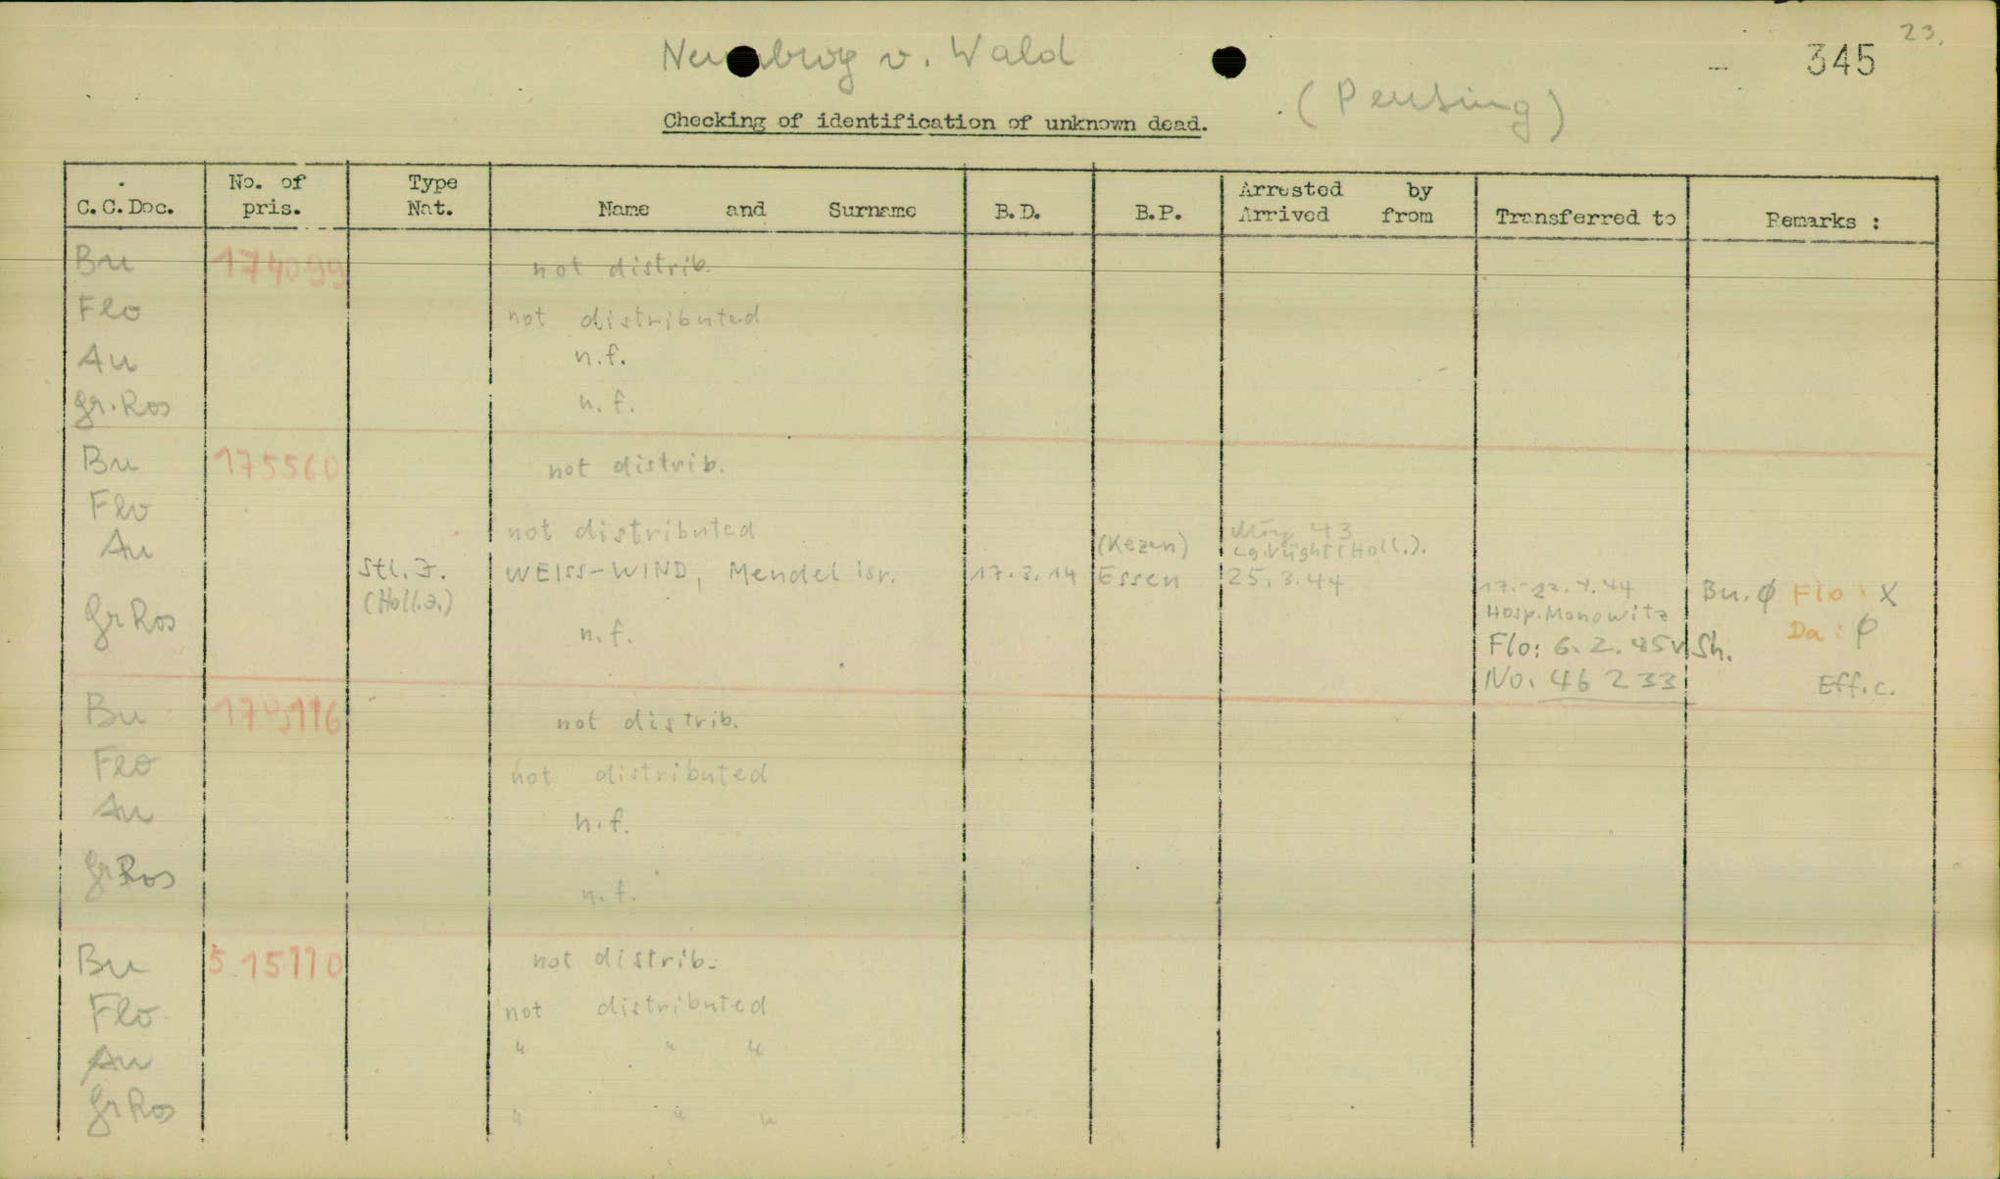 23.
345
v. Wald
(Pensing)
Checking of identification of unknown dead.
C.C.Doc. No. of pris. Type Nat. Name and Surname B.D. B.P. Arrested by Arrived from Transferred to Remarks :
Bu 174099 not distrib.
Flo not distributed
Au n.f.
gr.Ros n.f.
Bu 175560 not distrib.
Flo not distributed
Au Stl. J. (Holl.J.) WEISS-WIND, Mendel isr. 17.3.14 (Kezen) Essen 43 Lg.Vught (Holl.). 25.3.44
17.-22.4.44 Bu. ϕ Flo: X
Hosp. Monowitz Da: ϕ
gr Ros n.f. Flo: 6.2.45 v. Sh.
No. 46 233 Eff.c.
Bu not distrib.
Flo not distributed
Au n.f.
gr Ros n.f.
Bu 5 15110 not distrib.
Flo not distributed
Au " " "
gr Ros " " "